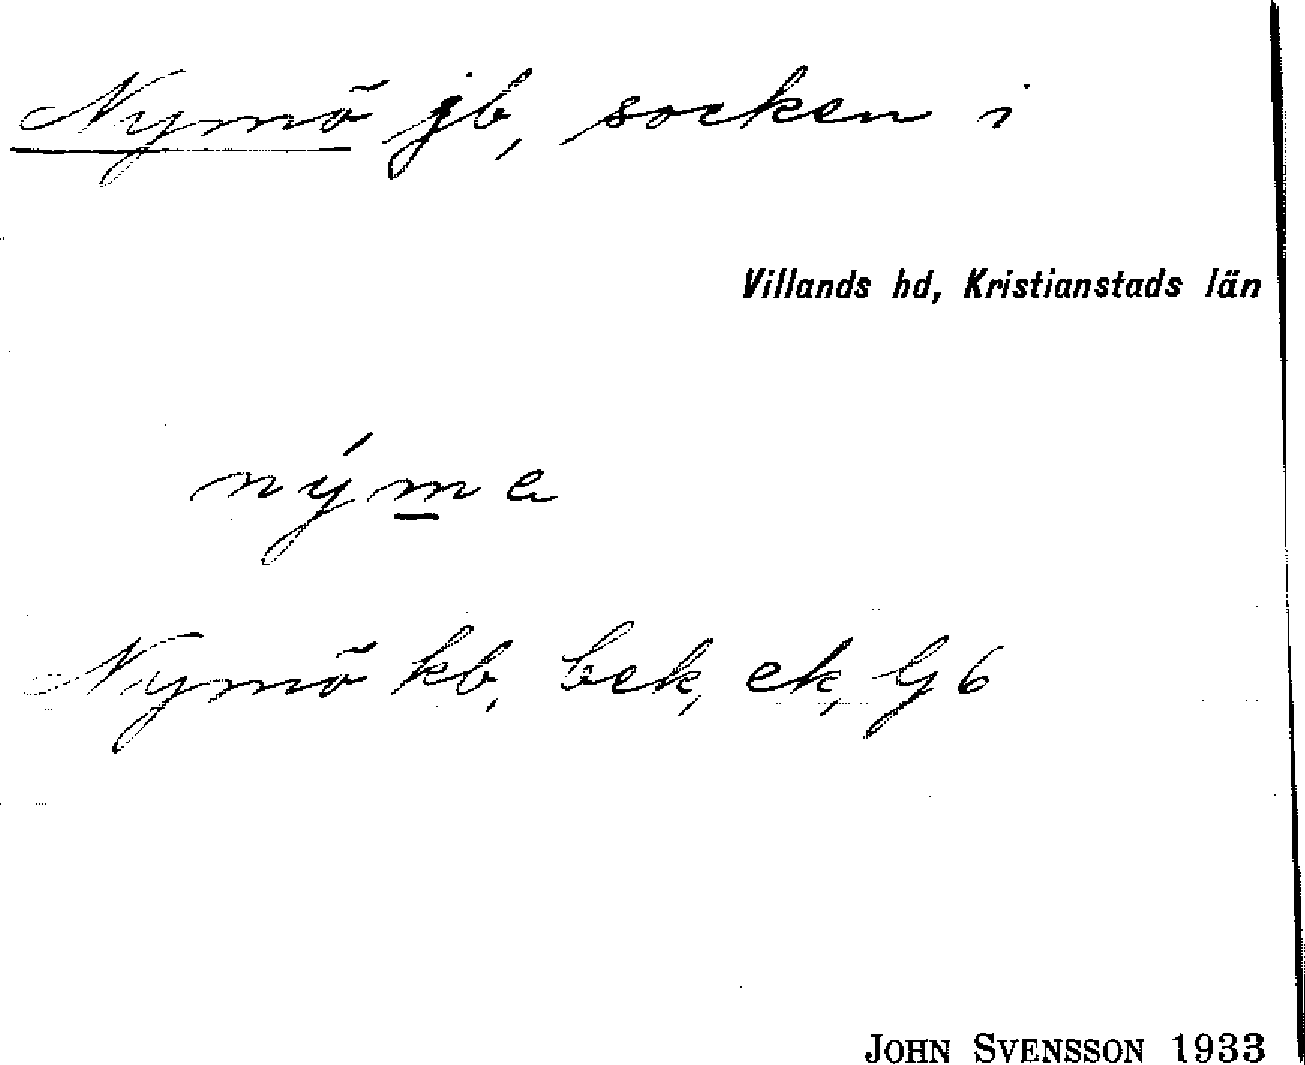 Nymö jb, socken i
Villands hd, Kristianstads län
nýme
Nymö kb, bek, ek, G6
JOHN SVENSSON 1933